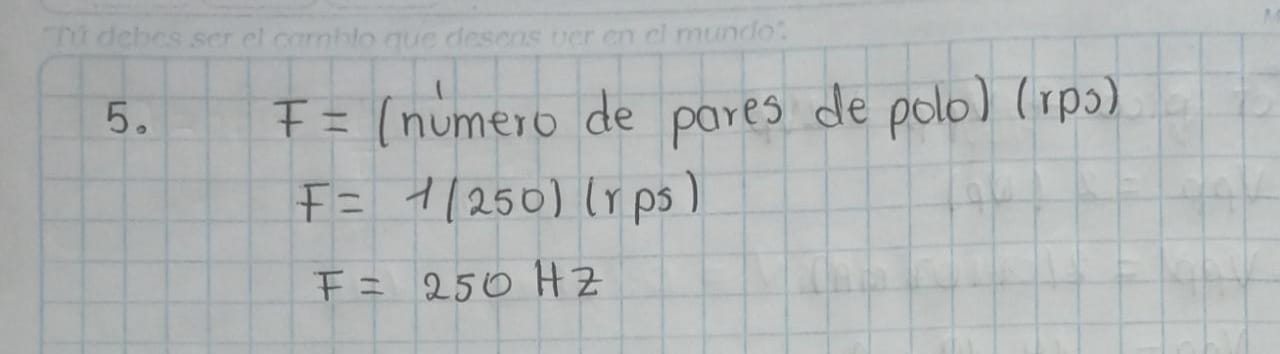 Tú debes ser el cambio que deseas ver en el mundo.
5. F = (número de pares de polo) (rps)
F = 1(250) (rps)
F = 250 Hz